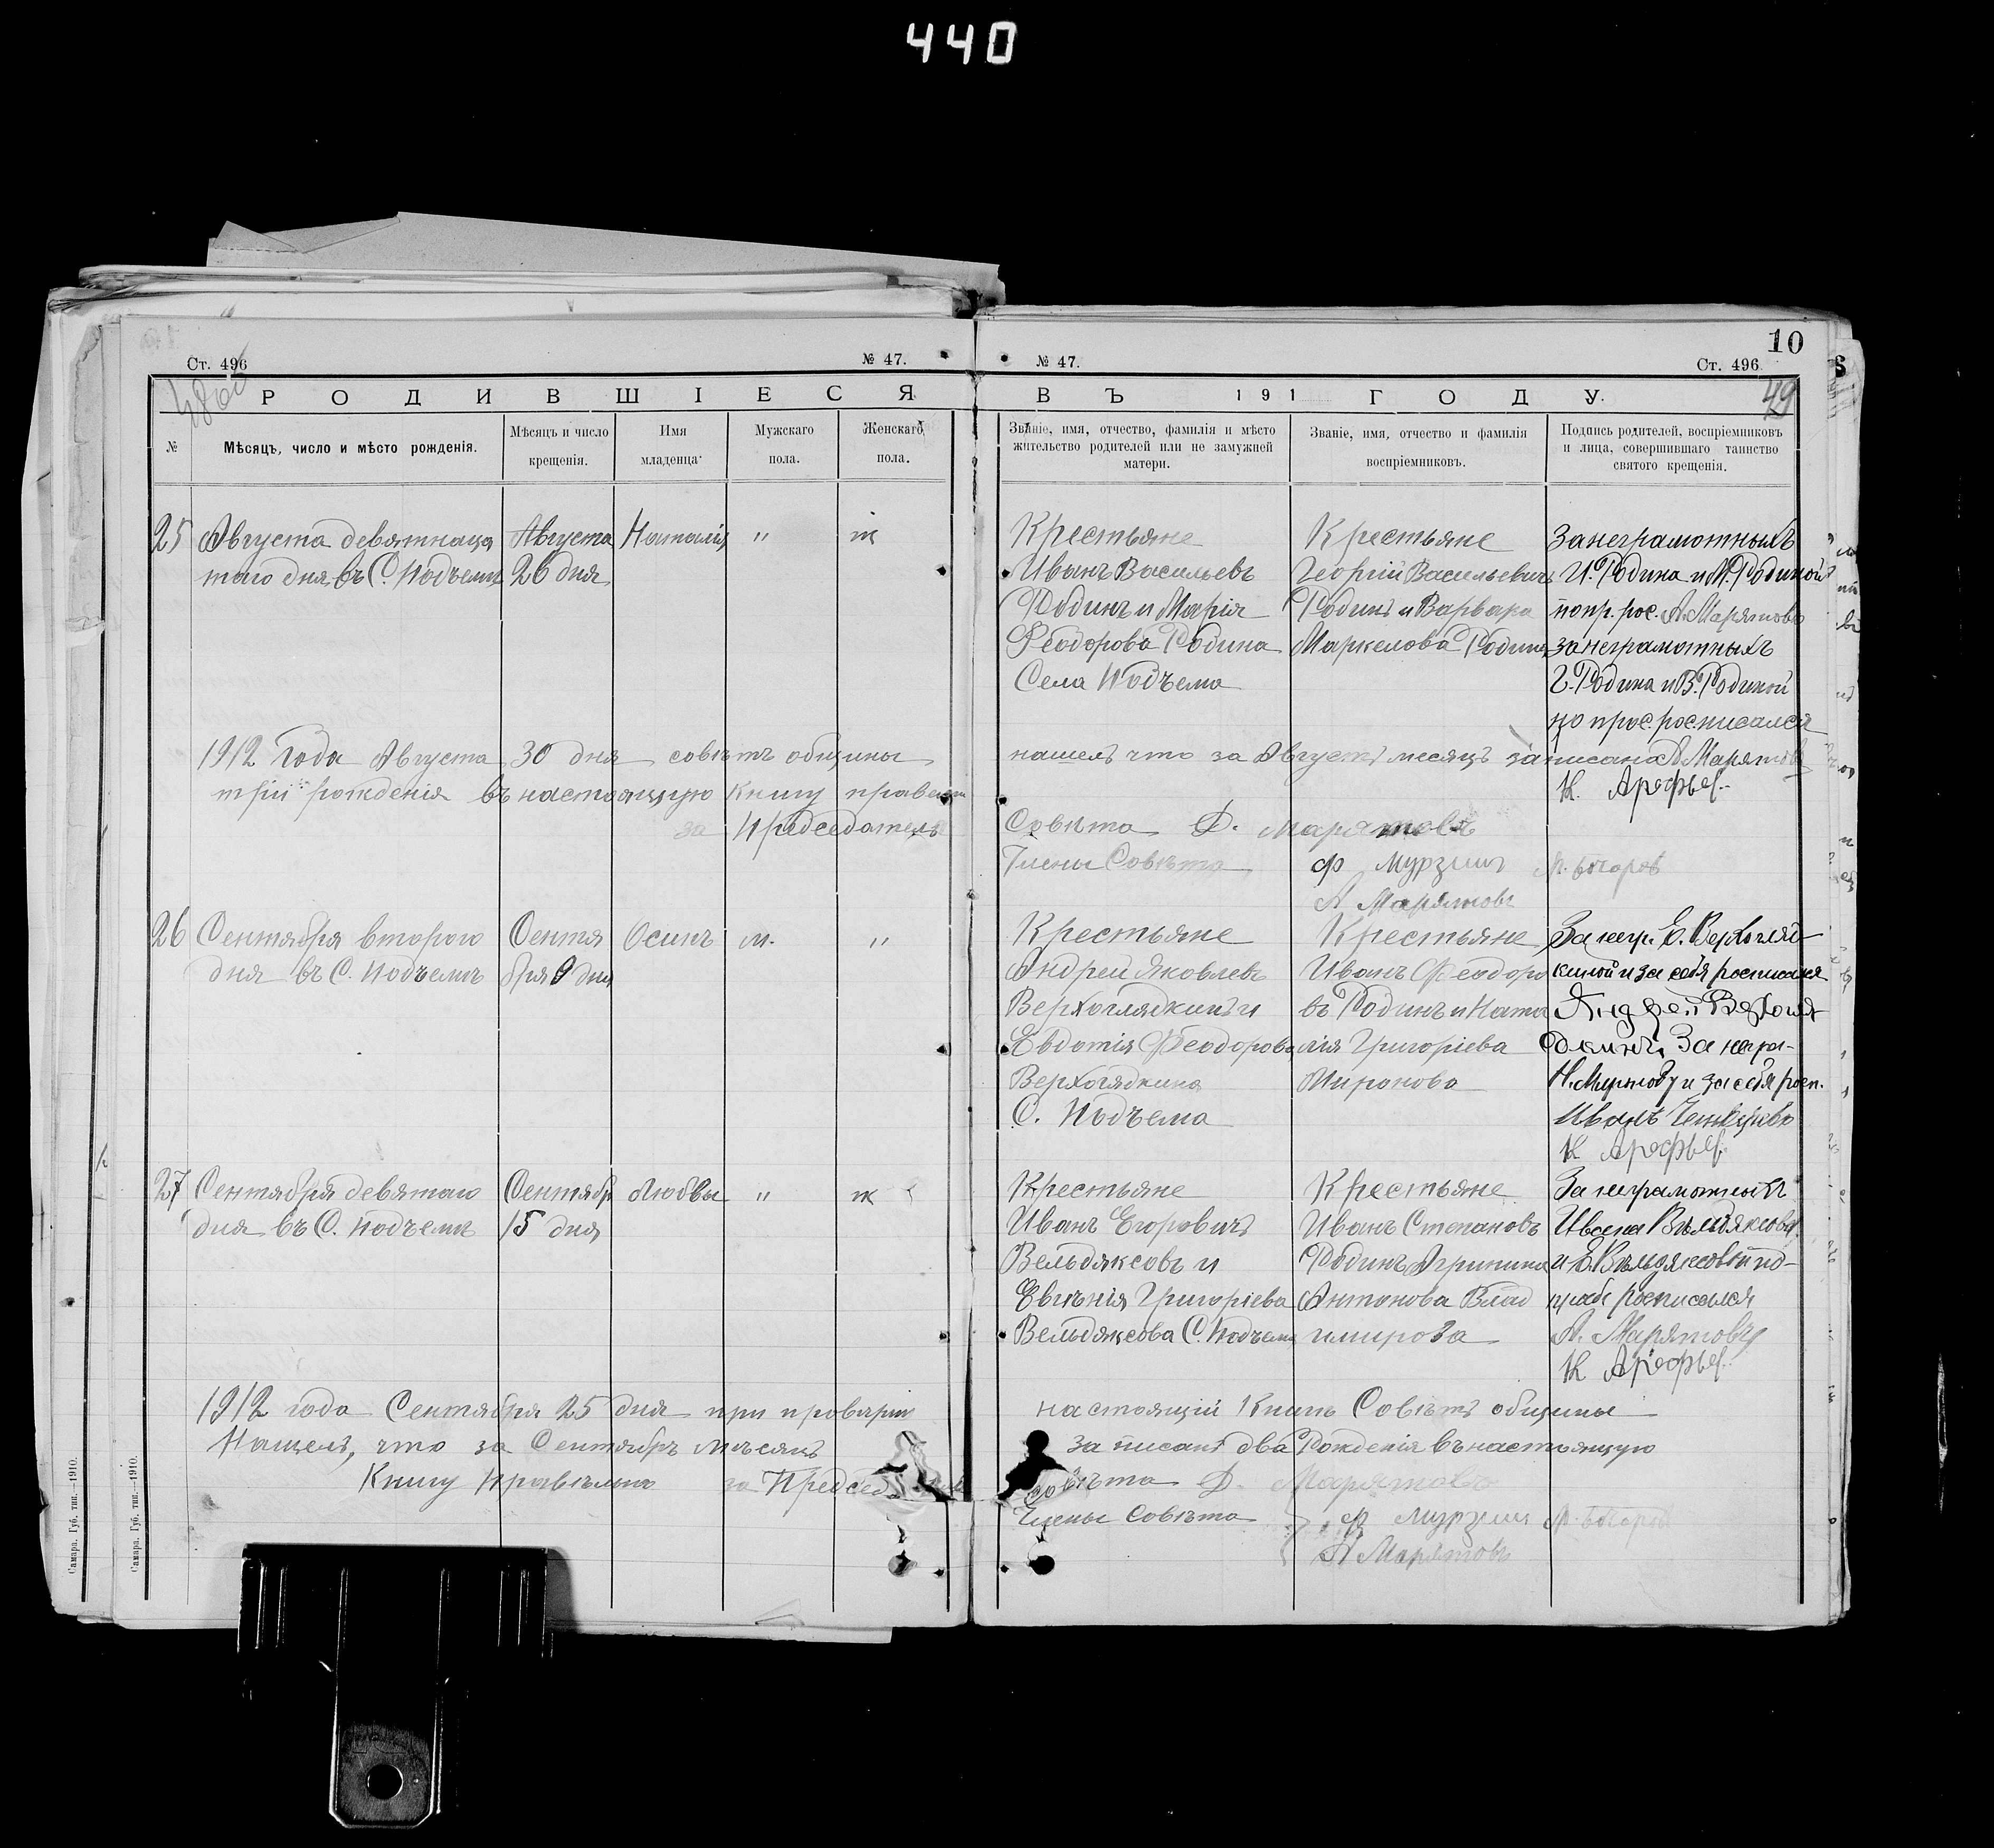 440
10
Ст. 496
№ 47.
№ 47.
Ст. 496.
49
РОДИВШІЕСЯ
ВЪ 191 ГОДУ.
№
Мѣсяцъ, число и мѣсто рожденія.
Мѣсяцъ и число
крещенія.
Имя
младенца
Мужскаго
пола.
Женскаго
пола.
Званіе, имя, отчество, фамилія и мѣсто
жительство родителей или не замужней
матери.
Званіе, имя, отчество и фамилія
воспріемниковъ.
Подпись родителей, воспріемниковъ
и лица, совершившаго таинство
святого крещенія.
25
Августа девятнаца
таго дня въ С. Подъемъ
Августа
26 дня
Наталія
"
ж
Крестьяне
Иванъ Васильевъ
Родинъ и Марія
Феодорова Родина
Села Подъема
Крестьяне
Георгій Васильевичъ
Родинъ и Варвара
Маркелова Родина
За неграмотныхъ
И. Родина и М. Родиной
попр. рос. А. Марятовъ
за неграмотныхъ
Г. Родина и В. Родиной
по прос росписался
А Марятовъ
К. Арефьев
1912 Года Августа 30 дня совѣтъ общины
нашелъ что за Августъ месяцъ записано
три рожденія въ настоящую книгу
за Председатель
Совѣта Д. Марятовъ
Члены Совѣта
Ф Мурзинъ
А Марятовъ
26
Сентября второго
дня въ С. Подъемъ
Сентя
бря 9 дня
Осипъ
м.
"
Крестьяне
Андрей Яковлевъ
Верхоглядкинъ и
Евдотія Феодорова
Верхогядкина
С. Подъема
Крестьяне
Иванъ Феодоро
въ Родинъ и Ната
лія Григоріева
Миронова
За негр. Е. Верхогляд
киной и за себя росписался
Андрей Верхогля
дкинъ За негра-
К Арефьев
27
Сентября девятаго
дня въ С. Подъемъ
Сентябр
15 дня
Любвы
"
ж
Крестьяне
Иванъ Егоровичъ
Вельдяксовъ и
Евгѣнія Григоріева
Вельдяксова С. Подъема
Крестьяне
Иванъ Степановъ
Родинъ Агрипина
Антонова Влад
имирова
За неграмотныхъ
Ивана Вѣльдяксова
и Е. Вѣльдяксовой по
прозб росписался
А. Марятовъ
К Арефьев
1912 года Сентября 25 дня при проверки
настоящій Книги Совѣтъ общины
Нашелъ, что за Сентябрь мѣсяцъ
записанъ два Рожденія въ настоящую
Книгу Правѣльно за Председ
Совѣта Д. Марятовъ
Члены Совѣта
Ф Мурзин
А Марятовъ
Самара. Губ. тип.—1910.
Самара. Губ. тип.—1910.